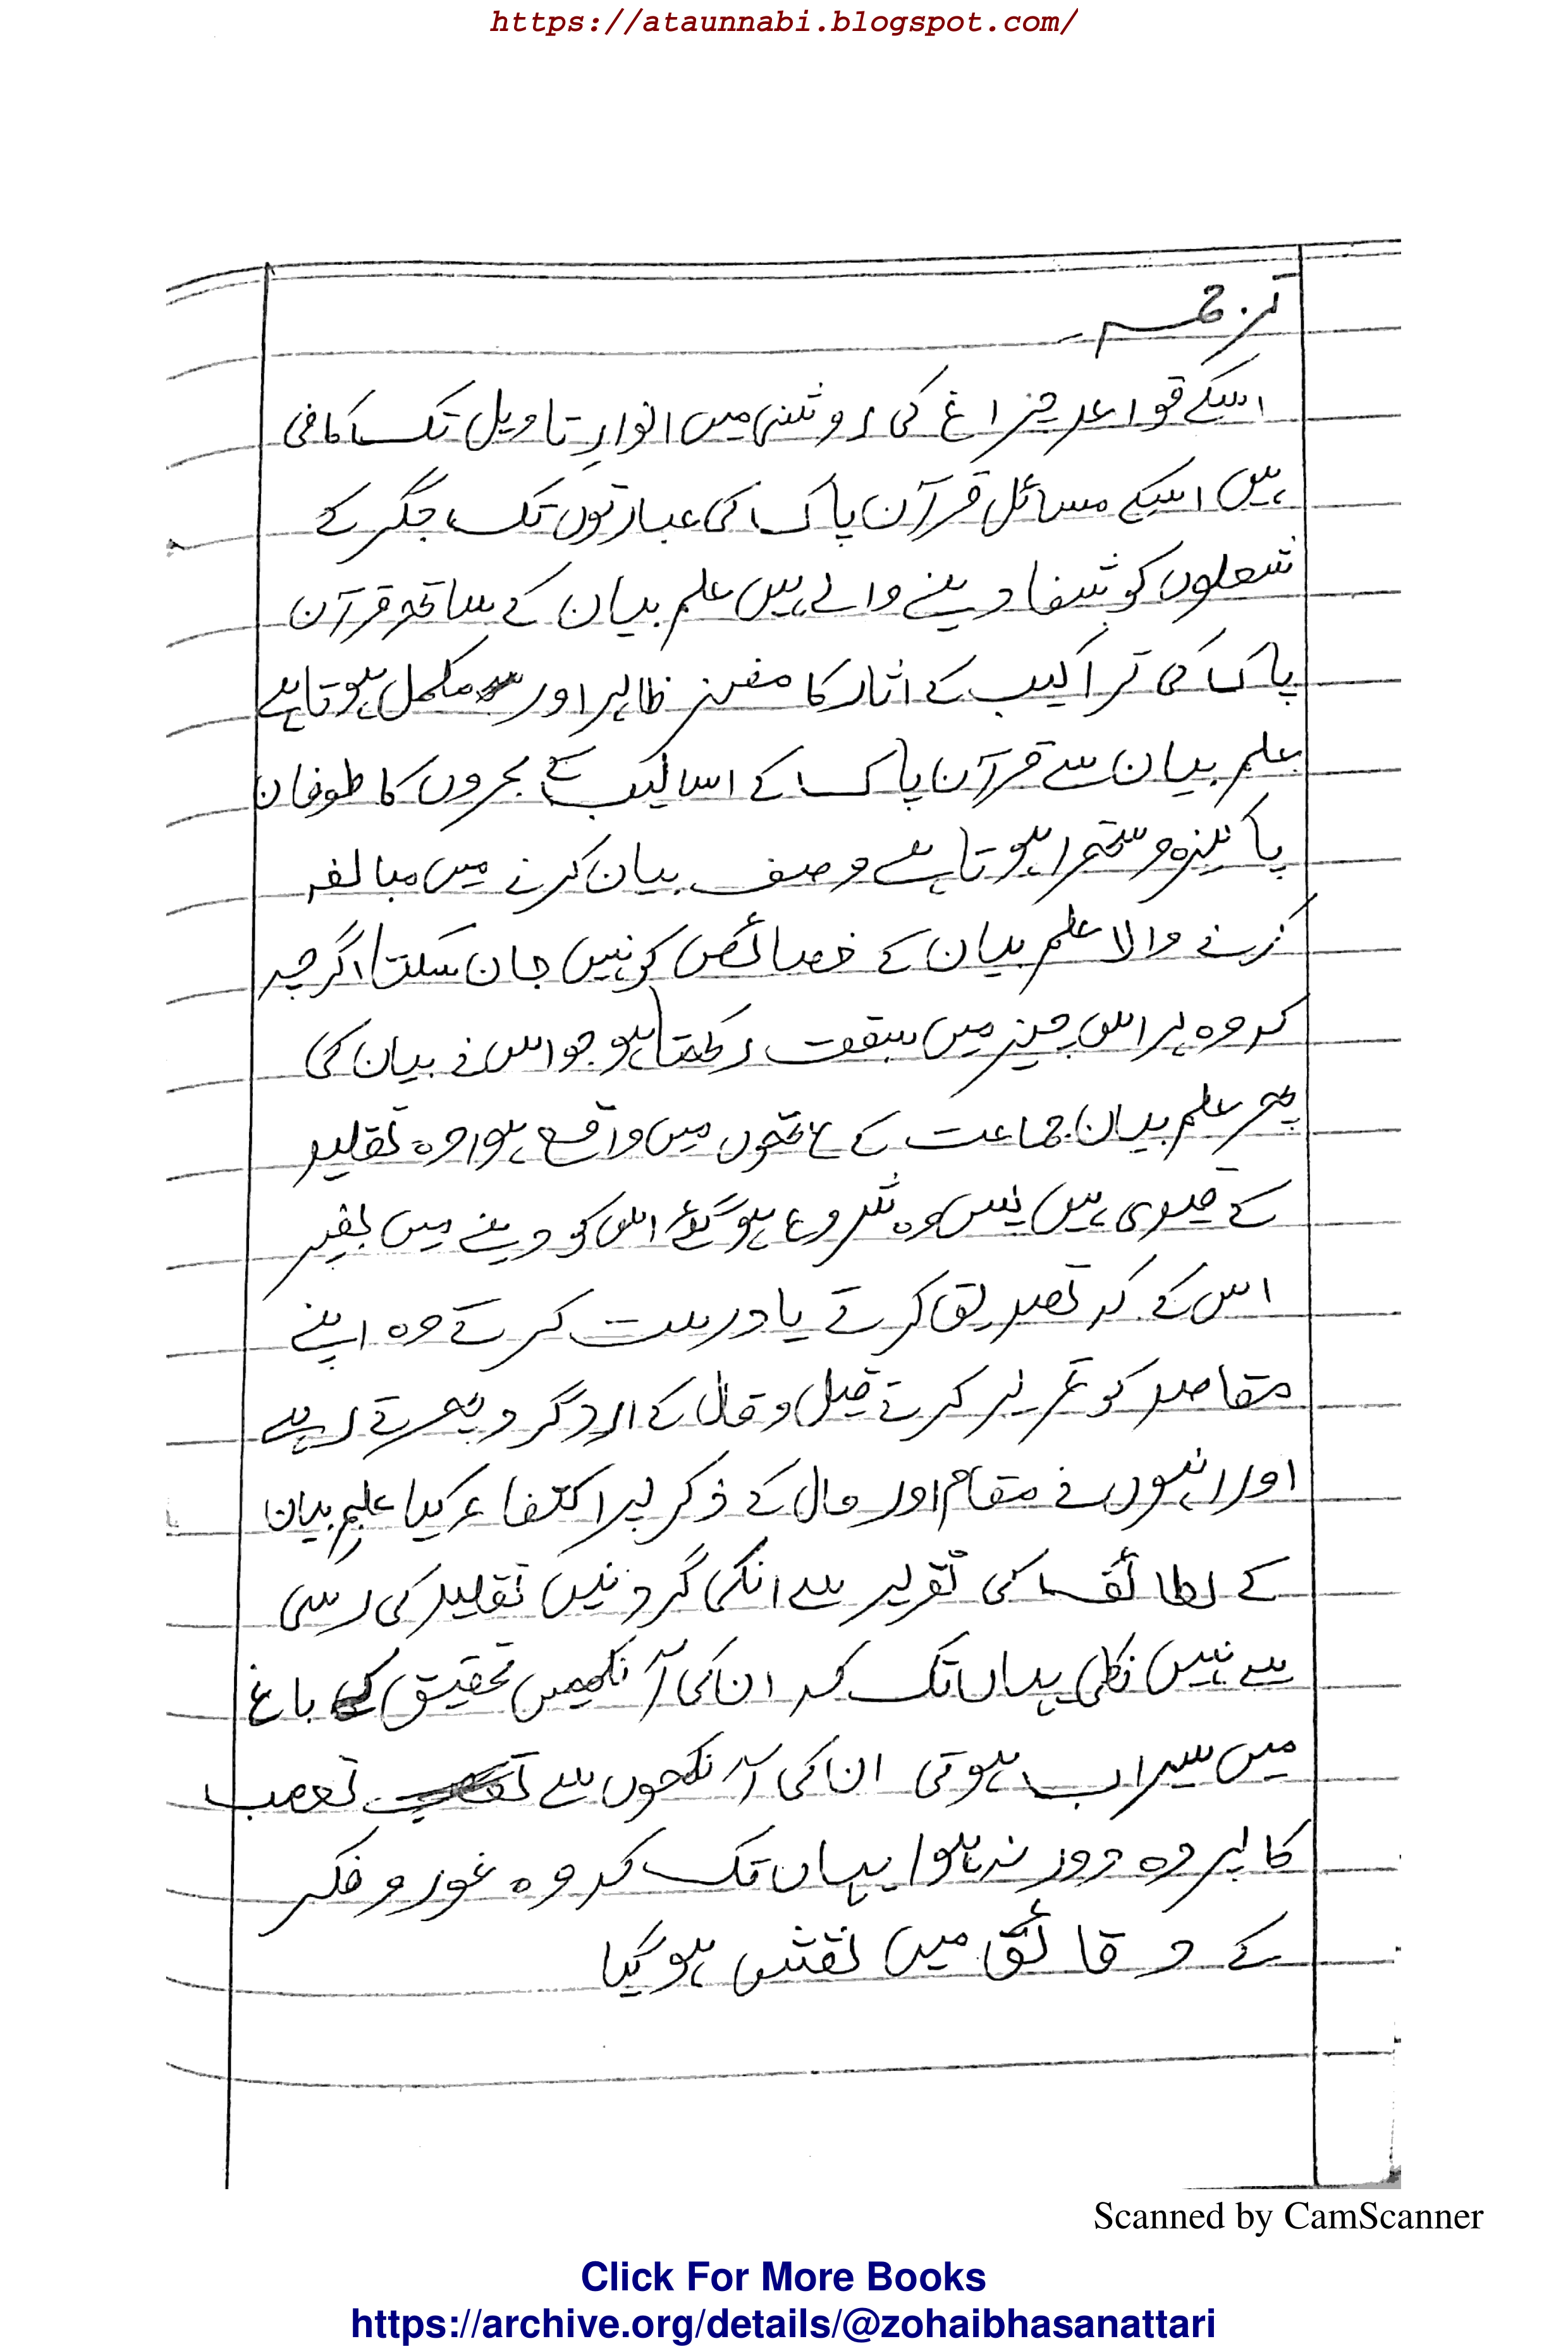 https://ataunnabi.blogspot.com/
ترجمہ۔
اسکے قواعد چراغ کی روشنی میں انوارِ تاویل تک کافی
ہیں اسکے مسائل قرآن پاک کی عبارتوں تک جگر کے
شعلوں کو شفا دینے والے ہیں علم بیان کے ساتھ قرآن
پاک کی تراکیب کے اثار کا مغز ظاہر اور مکمل ہوتا ہے
علم بیان سے قرآن پاک کے اسالیب کے بحروں کا طوفان
پاکیزہ و ستھرا ہوتا ہے وصف بیان کرنے میں مبالغہ
کرنے والا علم بیان کے خصائص کو نہیں جان سکتا اگرچہ
کہ وہ ہر اس چیز میں سبقت رکھتا ہو جو اس نے بیان کی
پھر علم بیان جماعت کے ہاتھوں میں واقع ہوا وہ تقلید
کے قیدی ہیں پس وہ شروع ہو گئے اس کو دینے میں بغیر
اس کے کہ تصدیق کرتے یا درست کرتے وہ اپنے
مقاصد کو تحریر کرتے قیل و قال کے ارد گرد پھرتے رہے
اور انہوں نے مقام اور حال کے ذکر پر اکتفاء کیا علمِ بیان
کے لطائف کی تقریر سے انکی گردنیں تقلید کی رسی
سے نہیں نکلی یہاں تک کہ ان کی آنکھیں تحقیق کے باغ
میں سیراب ہوتی ان کی آنکھوں سے تعصب
کا پردہ دور نہ ہوا یہاں تک کہ وہ غور و فکر
کے دقائق میں نقش ہو گیا
Scanned by CamScanner
Click For More Books
https://archive.org/details/@zohaibhasanattari